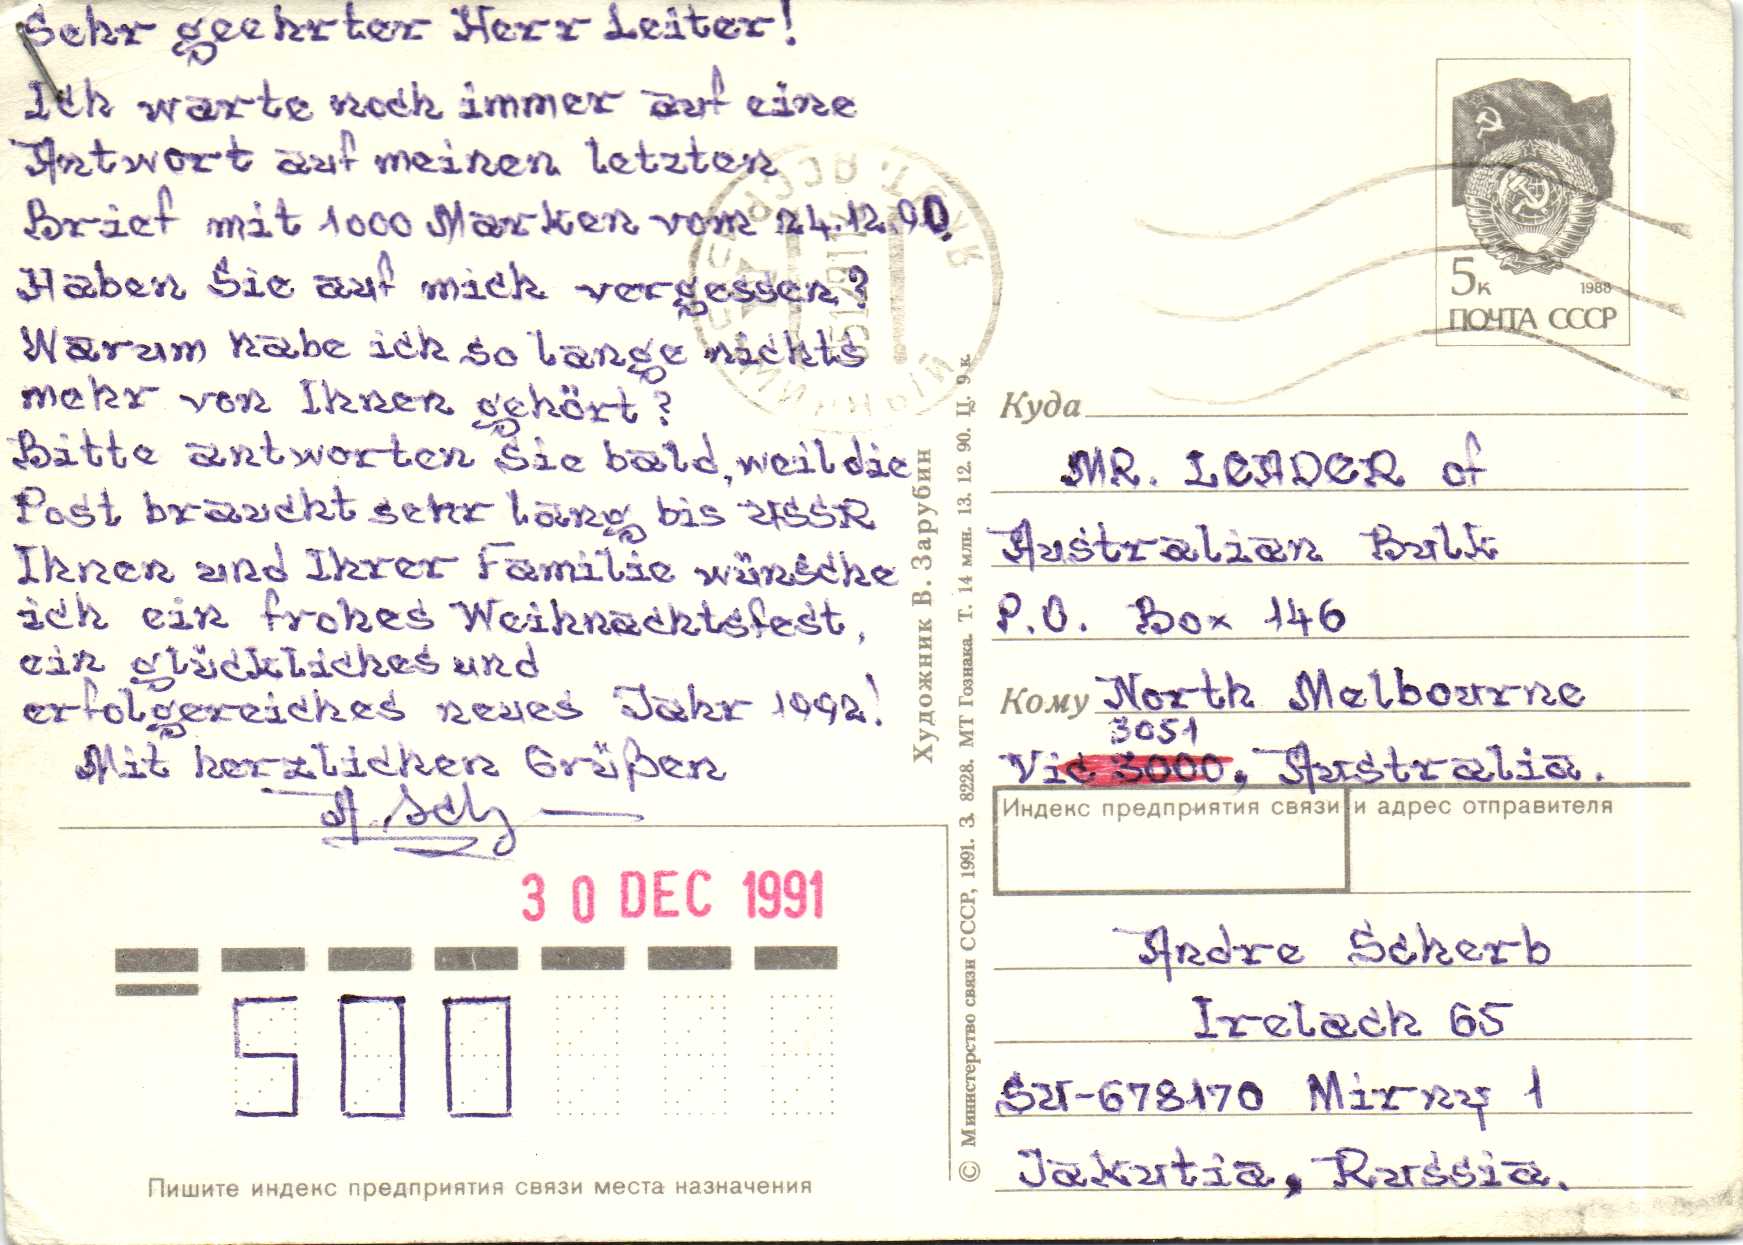 Sehr geehrter Herr Leiter!
Ich warte noch immer auf eine
Antwort auf meinen letzten
Brief mit 1000 Marken vom 24.12.90.
Haben Sie auf mich vergessen?
Warum habe ich so lange nichts
mehr von Ihnen gehört?
Bitte antworten Sie bald, weil die
Post braucht sehr lang bis USSR
Ihnen und Ihrer Familie wünsche
ich ein frohes Weihnachtsfest,
ein glückliches und
erfolgereiches neues Jahr 1992!
Mit herzlichen Grüßen
A. Sch
30 DEC 1991
500
Пишите индекс предприятия связи места назначения
Художник В. Зарубин
© Министерство связи СССР, 1991. З. 8228. МТ Гознака. Т. 14 млн. 13. 12. 90. Ц. 9 к.
5к
1988
ПОЧТА СССР
Куда
MR. LEADER of
Australian Bulk
P.O. Box 146
Кому North Melbourne
3051
Vic 3000, Australia.
Индекс предприятия связи и адрес отправителя
Andre Scherb
Irelach 65
SU-678170 Mirny 1
Jakutia, Russia.